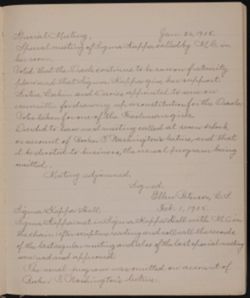 Special Meeting. Jan. 30, 1905.
Special meeting of Sigma Kappa called by M. C. in
her room.
Voted that the Oracle continue to be a non-fraternity
plan and that Sigma Kappa give her support.
Sisters and appointed to serve on
committee for drawing up constitution for the Oracle.
Vote taken for one of the
Decided to have next meeting called at seven o'clock
on account of Booker T. Washington's lecture, and that
it be devoted to business, the usual program being
omitted.
Meeting adjourned.
Signed,
Ellen Peterson, C. S.
Sigma Kappa Hall. Feb. 1, 1905.
Sigma Kappa met in Sigma Kappa Hall with M. C. in
the chair. After scripture reading and roll call the records
of the last regular meeting and also of the last special meeting
were read and approved.
The usual program was omitted on account of
Booker T. Washington's lecture.